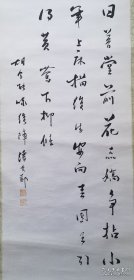 日暮堂前花蕊嬌爭拈小
筆上床描繡成安向春園裏引
得黄鶯下柳條
胡令能咏繡障